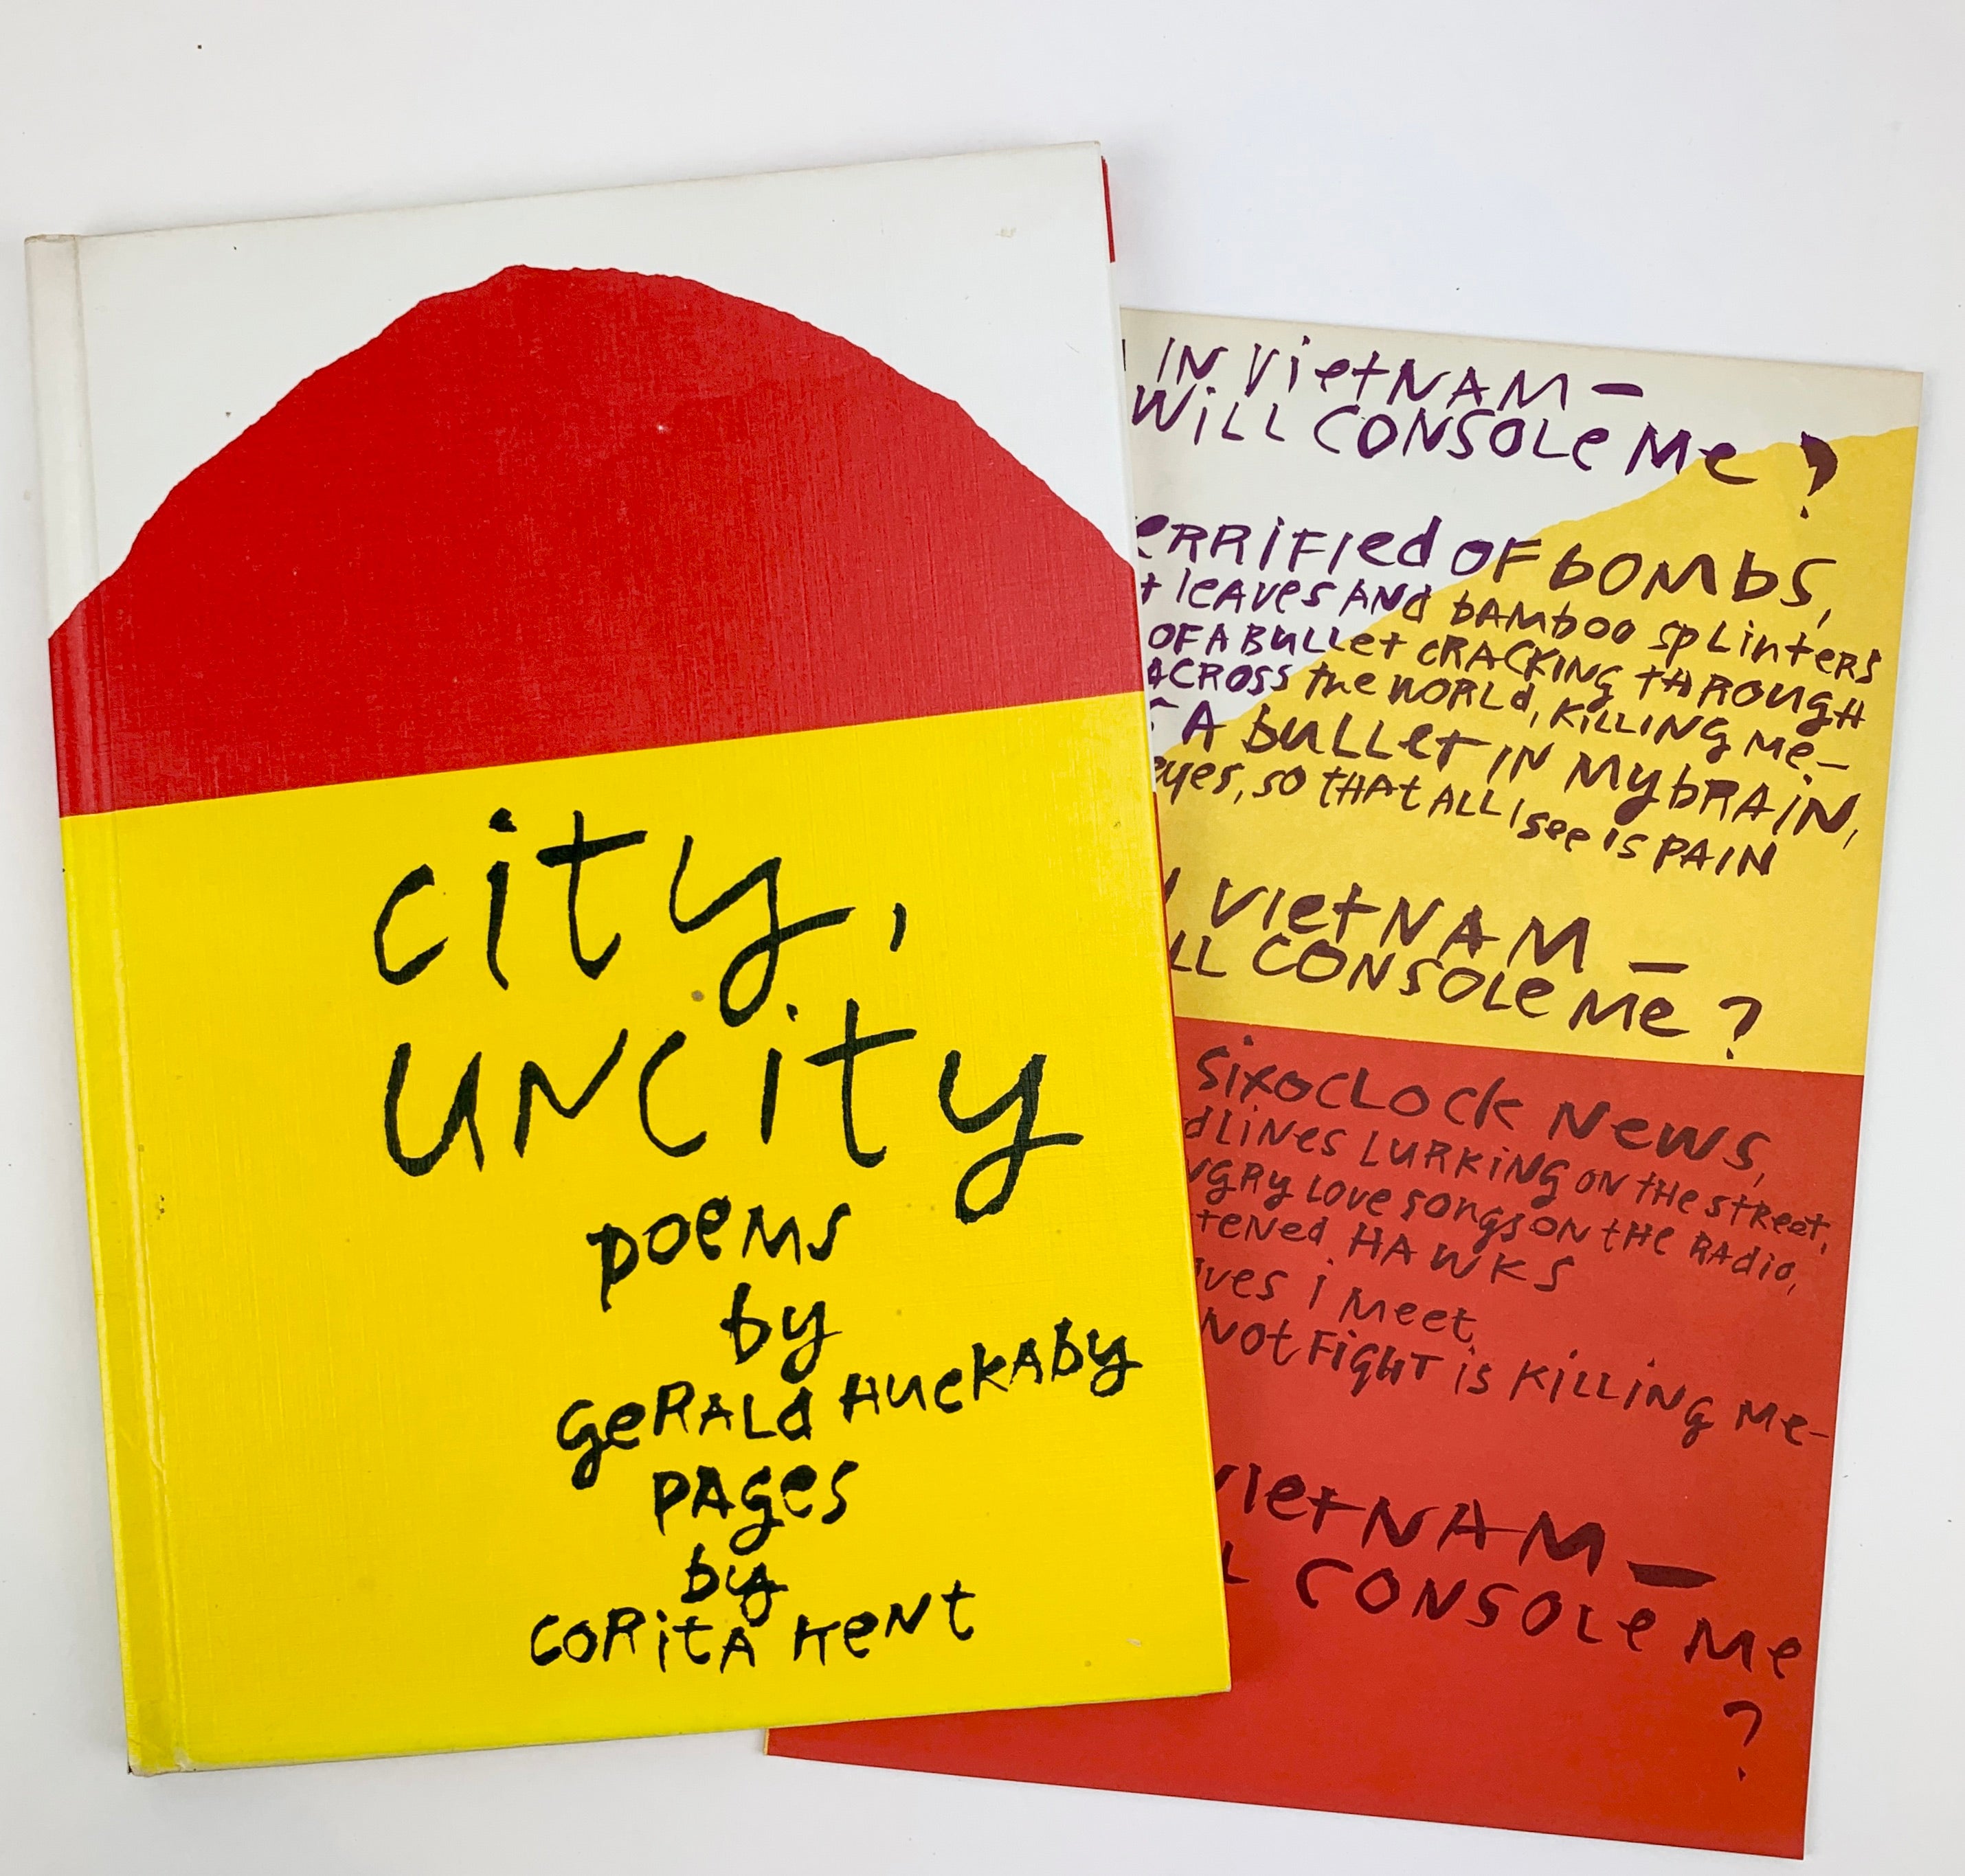 city,
uncity
poems
by
GeRALd HuckAby
PAges
by
CoRitA Kent
IN VietNAM —
WiLL CONSOLe Me ?
OF bOMbS,
leAVes ANd bAMboo SpLinteRS
OF A BuLLet CRACKING tHROUgH
ACROSS the WORLd, KiLLiNg Me —
A buLLet IN My bRAiN,
eyes, SO tHAt ALL I see is PAIN
VietNAM —
CONSOLe Me ?
SixOCLOCk NewS,
LURKiNg ON tHe stReet,
LOVe SONgS ON tHe RAdio,
HAWKS
i Meet
Not FigHt is KiLLiNg Me —
VietNAM —
CONSOLe Me
?